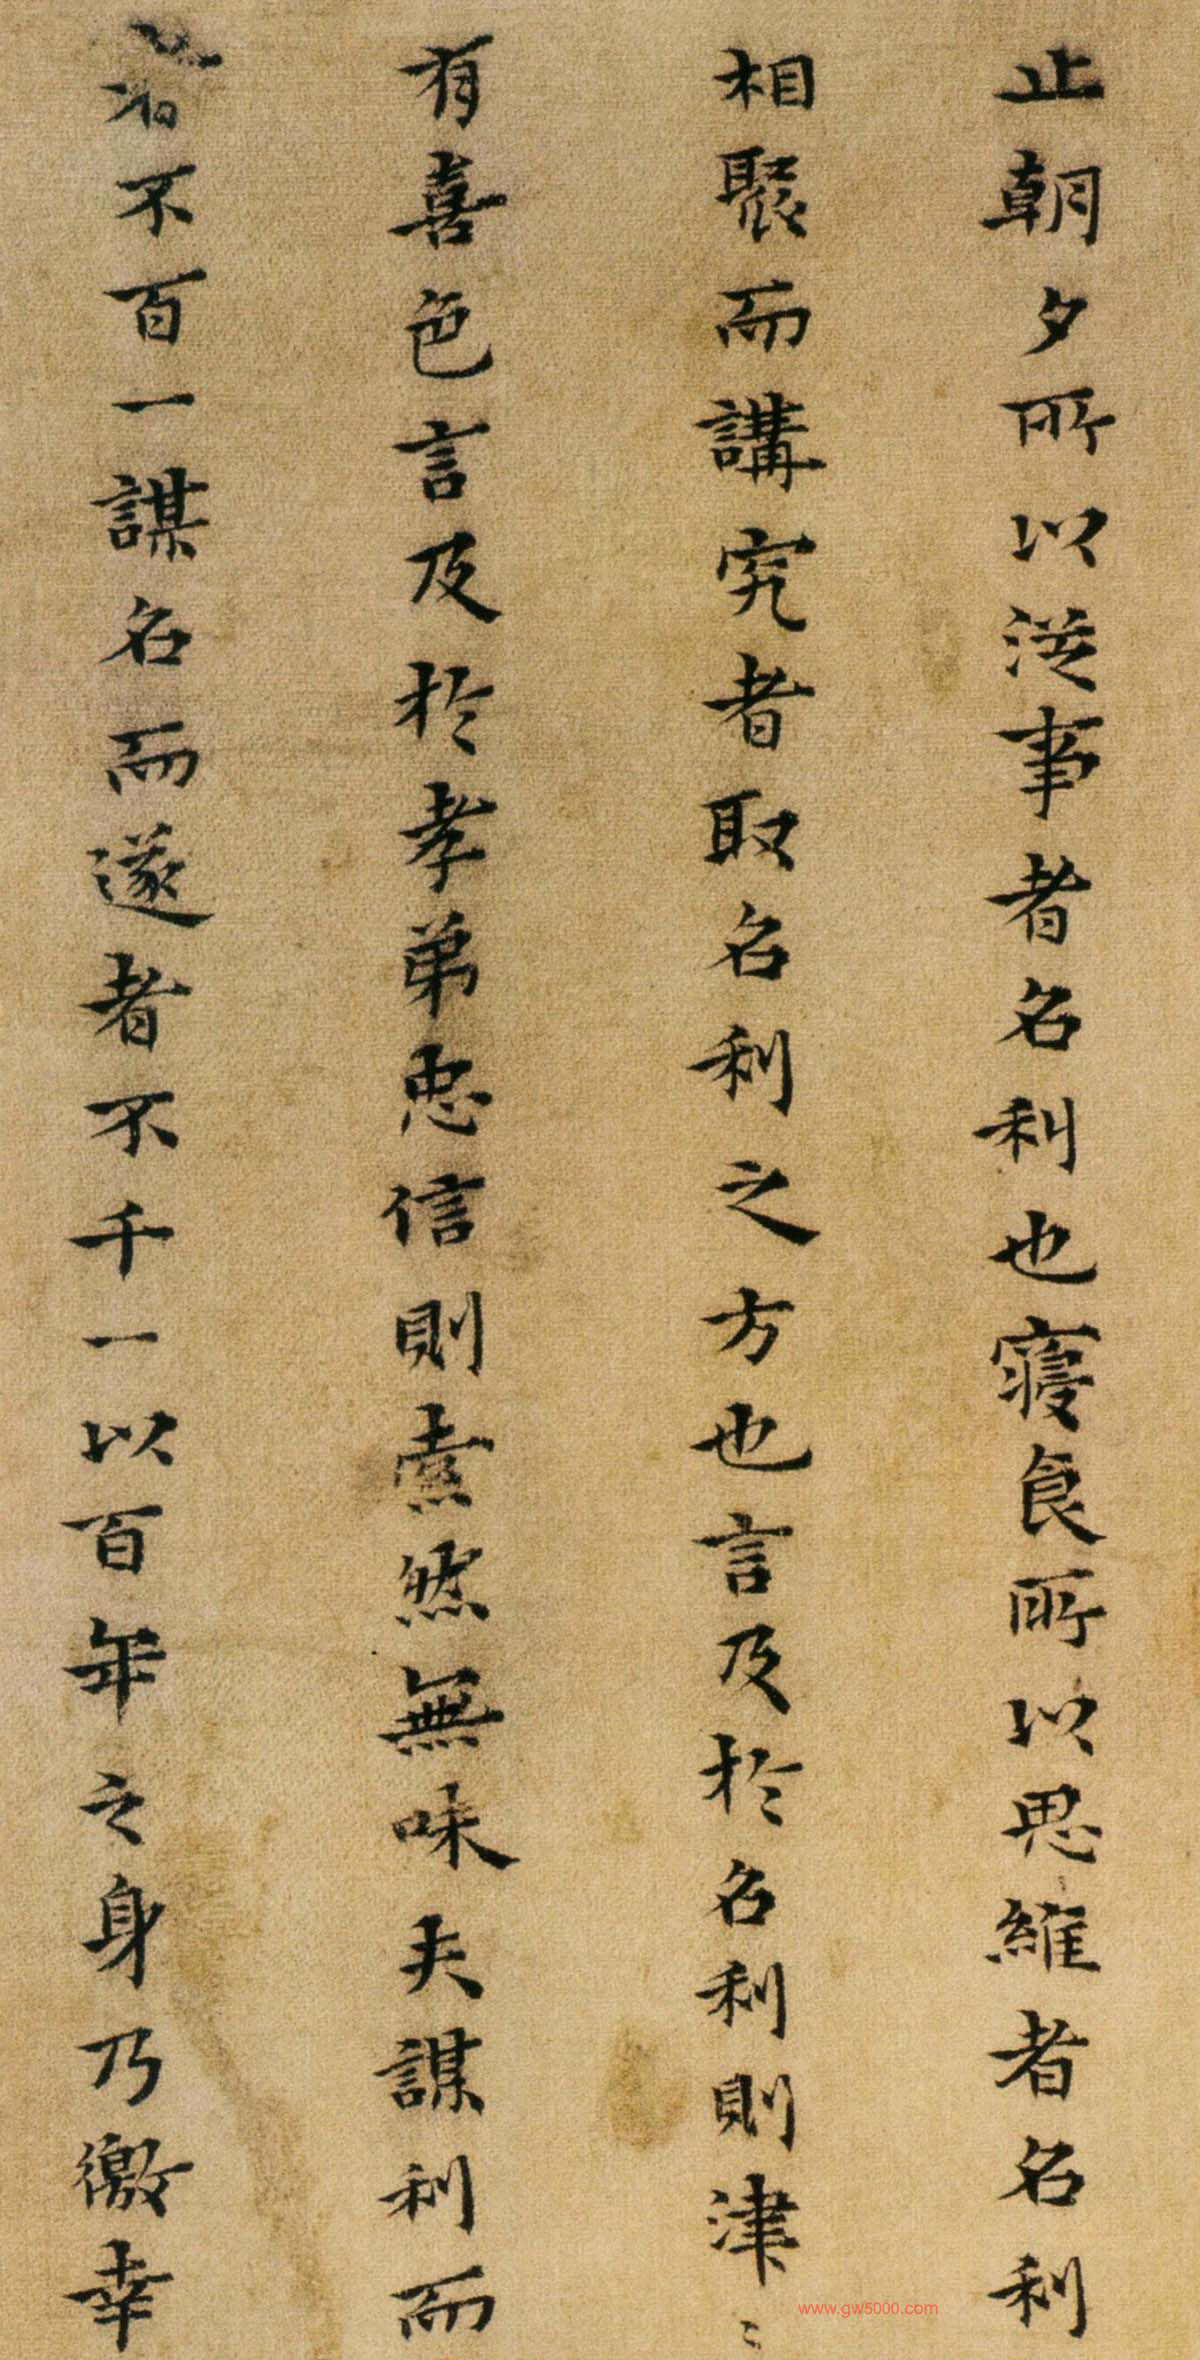 止朝夕所以従事者名利也寢食所以思維者名利
相聚而講究者取名利之方也言及於名利則津〻
有喜色言及於孝弟忠信則索然無味夫謀利而
者不百一謀名而遂者不千一以百年之身乃徼幸
www.gw5000.com